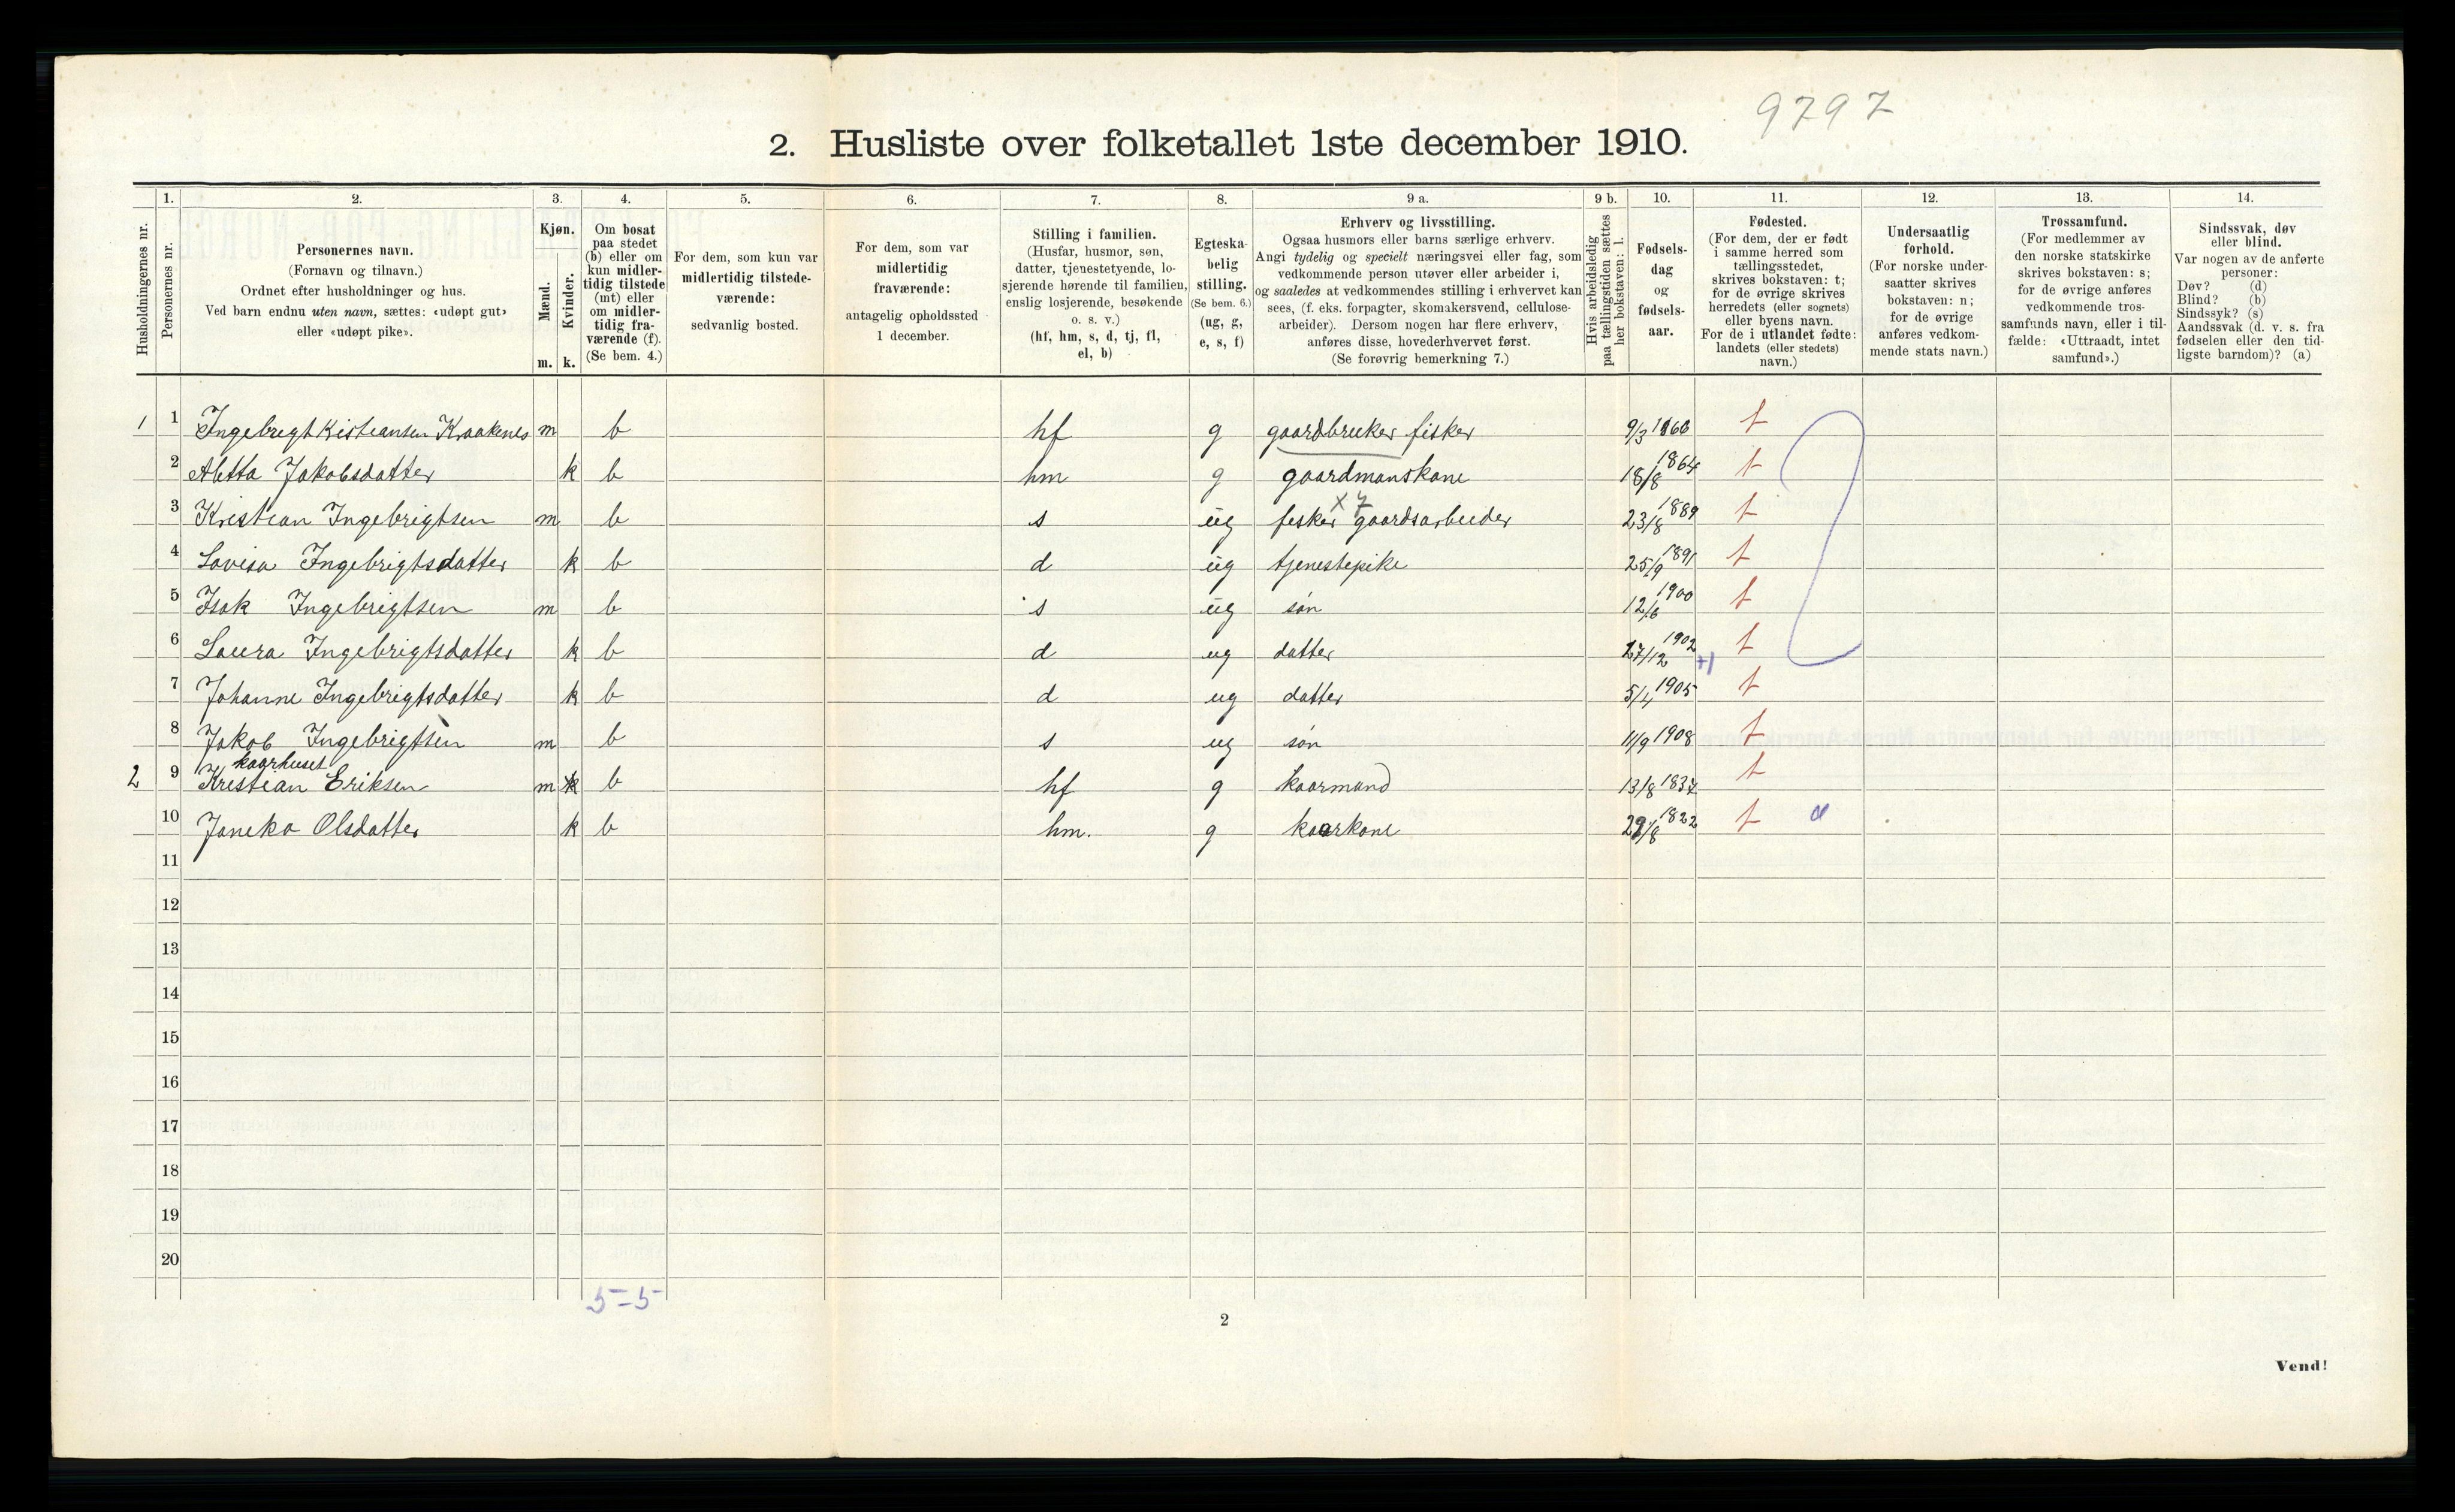 9797
2. Husliste over folketallet 1ste december 1910.
Husholdningernes nr.
1.
Personernes nr.
2.
Personernes navn.
(Fornavn og tilnavn.)
Ordnet efter husholdninger og hus.
Ved barn endnu uten navn, sættes: «udøpt gut»
eller «udøpt pike».
3.
Kjøn.
Mænd.
Kvinder.
m. k.
4.
Om bosat
paa stedet
(b) eller om
kun midler-
tidig tilstede
(mt) eller
om midler-
tidig fra-
værende (f).
(Se bem. 4.)
5.
For dem, som kun var
midlertidig tilstede-
værende:
sedvanlig bosted.
6.
For dem, som var
midlertidig
fraværende:
antagelig opholdssted
1 december.
7.
Stilling i familien.
(Husfar, husmor, søn,
datter, tjenestetyende, lo-
sjerende hørende til familien,
enslig losjerende, besøkende
o. s. v.)
(hf, hm, s, d, tj, fl,
el, b)
8.
Egteska-
belig
stilling.
(Se bem. 6.)
(ug, g,
e, s, f)
9 a.
Erhverv og livsstilling.
Ogsaa husmors eller barns særlige erhverv.
Angi tydelig og specielt næringsvei eller fag, som
vedkommende person utøver eller arbeider i,
og saaledes at vedkommendes stilling i erhvervet kan
sees, (f. eks. forpagter, skomakersvend, cellulose-
arbeider). Dersom nogen har flere erhverv,
anføres disse, hovederhvervet først.
(Se forøvrig bemerkning 7.)
9 b.
Hvis arbeidsledig
paa tællingstiden sættes
her bokstaven: l.
10.
Fødsels-
dag
og
fødsels-
aar.
11.
Fødested.
(For dem, der er født
i samme herred som
tællingsstedet,
skrives bokstaven: t;
for de øvrige skrives
herredets (eller sognets)
eller byens navn.
For de i utlandet fødte:
landets (eller stedets)
navn.)
12.
Undersaatlig
forhold.
(For norske under-
saatter skrives
bokstaven: n;
for de øvrige
anføres vedkom-
mende stats navn.)
13.
Trossamfund.
(For medlemmer av
den norske statskirke
skrives bokstaven: s;
for de øvrige anføres
vedkommende tros-
samfunds navn, eller i til-
fælde: «Uttraadt, intet
samfund».)
14.
Sindssvak, døv
eller blind.
Var nogen av de anførte
personer:
Døv? (d)
Blind? (b)
Sindssyk? (s)
Aandssvak (d. v. s. fra
fødselen eller den tid-
ligste barndom)? (a)
1 1 Ingebregt Kistiansen Kraakenes m b hf g gaardbruker fisker 9/3 1866 t
2 Aletta Jakobsdatter k b hm g gaardmanskone 18/8 1864 t
3 Kristian Ingebrigtsen m b s ug fisker x 7 gaardsarbeider 23/8 1889 t
4 Lovisa Ingebrigtsdatter k b d ug tjenestepike 25/9 1891 t
5 Isak Ingebrigtsen m b s ug søn 12/6 1900 t
6 Laura Ingebrigtsdatter k b d ug datter 27/12 1902 +1 t
7 Johanne Ingebrigtsdatter k b d ug datter 5/4 1905 t
8 Jakob Ingebrigtsen m b s ug søn 11/9 1908 t
kaarhuset
2 9 Kristian Eriksen m k b hf g kaarmand 13/8 1837 t
10 Janeka Olsdatter k b hm. g kaarkone 29/8 1822 t a
11
12
13
14
15
16
17
18
19
20
5-5
2
Vend!